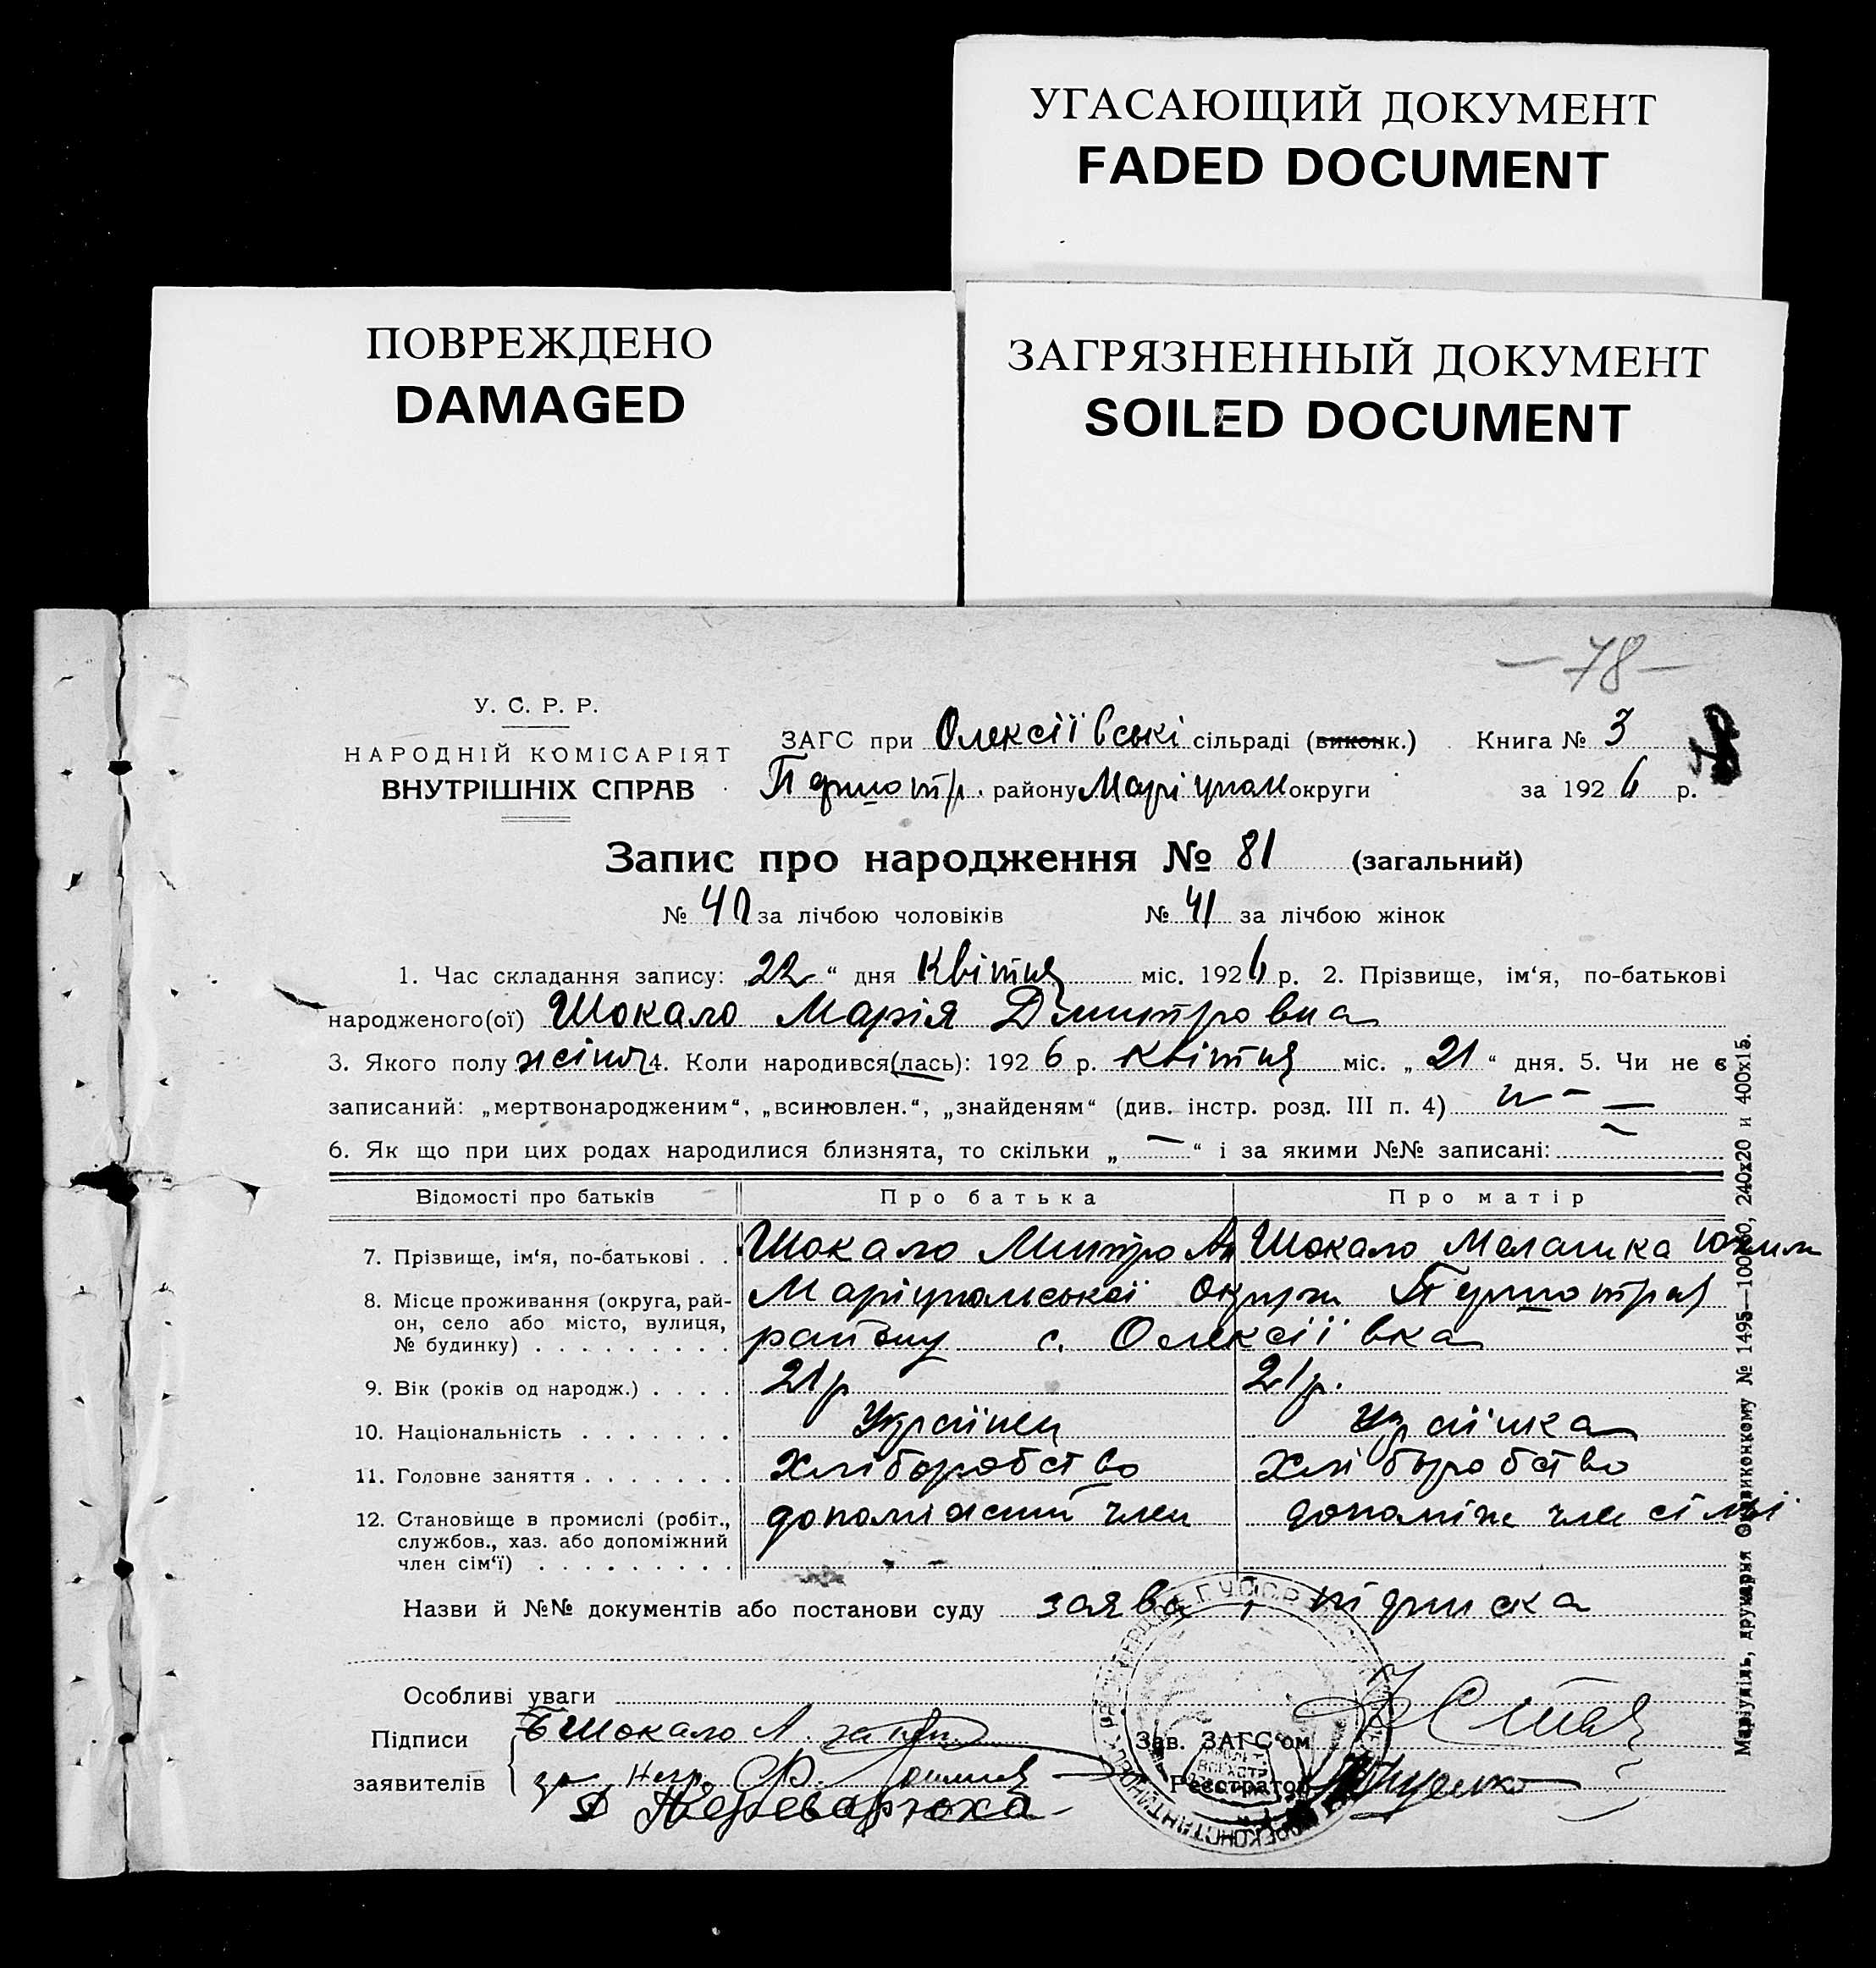 УГАСАЮЩИЙ ДОКУМЕНТ
FADED DOCUMENT
ПОВРЕЖДЕНО
DAMAGED
ЗАГРЯЗНЕННЫЙ ДОКУМЕНТ
SOILED DOCUMENT
— 78 —
У. С. Р. Р.
НАРОДНІЙ КОМІСАРІЯТ
ВНУТРІШНІХ СПРАВ
ЗАГС при Олексіївські сільраді (виконк.) Книга № 3
Першотр. району Маріупол округи за 1926 р.
Запис про народження № 81 (загальний)
№ 40 за лічбою чоловіків № 41 за лічбою жінок
1. Час складання запису: „22“ дня Квітня міс. 1926 р. 2. Прізвище, ім‘я, по-батькові
народженого(ої) Шокало Марія Дмитровна
3. Якого полу жіноч 4. Коли народився(лась): 1926 р. Квітня міс. „21“ дня. 5. Чи не є
записаний: „мертвонародженим“, „всиновлен.“, „знайденям“ (див. інстр. розд. III п. 4)
6. Як що при цих родах народилися близнята, то скільки „—“ і за якими №№ записані: —
Відомості про батьків Про батька Про матір
7. Прізвище, ім‘я, по-батькові . . Шокало Митро Ан Шокало Меланка Юхим
8. Місце проживання (округа, рай-
он, село або місто, вулиця,
№ будинку) . . . . . . . . .
Маріупольської Округи Першотрав
району с. Олексіївка
9. Вік (років од народж.) . . . . 21 р 21 р.
10. Національність . . . . . . . Українец Українка
11. Головне заняття . . . . . . . Хліборобство Хліборобство
12. Становище в промислі (робіт.,
службов., хаз. або допоміжний
член сім‘ї) . . . . . . . . .
допоміжний член допоміж член сімьі
Назви й №№ документів або постанови суду заява і підписка
Особливі уваги
Підписи
заявителів
Шокало А.
за негр. Ф.
Зав. ЗАГС‘ом
Реєстратор
Маріупіль, друкарня Окрвиконкому № 1495—10000, 240x20 и 400x15.